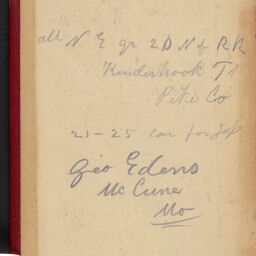 all N E qr 2D N of R R
Kinderhook
Pike Co
21-25 car for Jap
Geo Edens
McCune
Mo